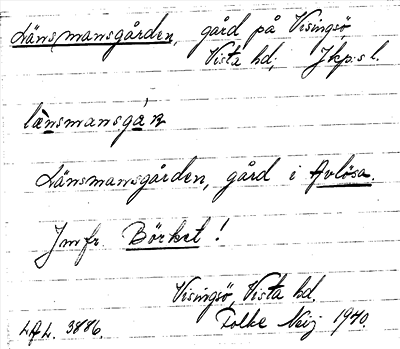 Länsmansgården, gård på Visingsö,
Vista hd; Jkp:s l.
lænsmansgá̱n
Länsmansgården, gård i Avlösa.
Jmfr. Börket!
Visingsö, Vista hd.
L.A.L. 3886. Folke Neij 1940.